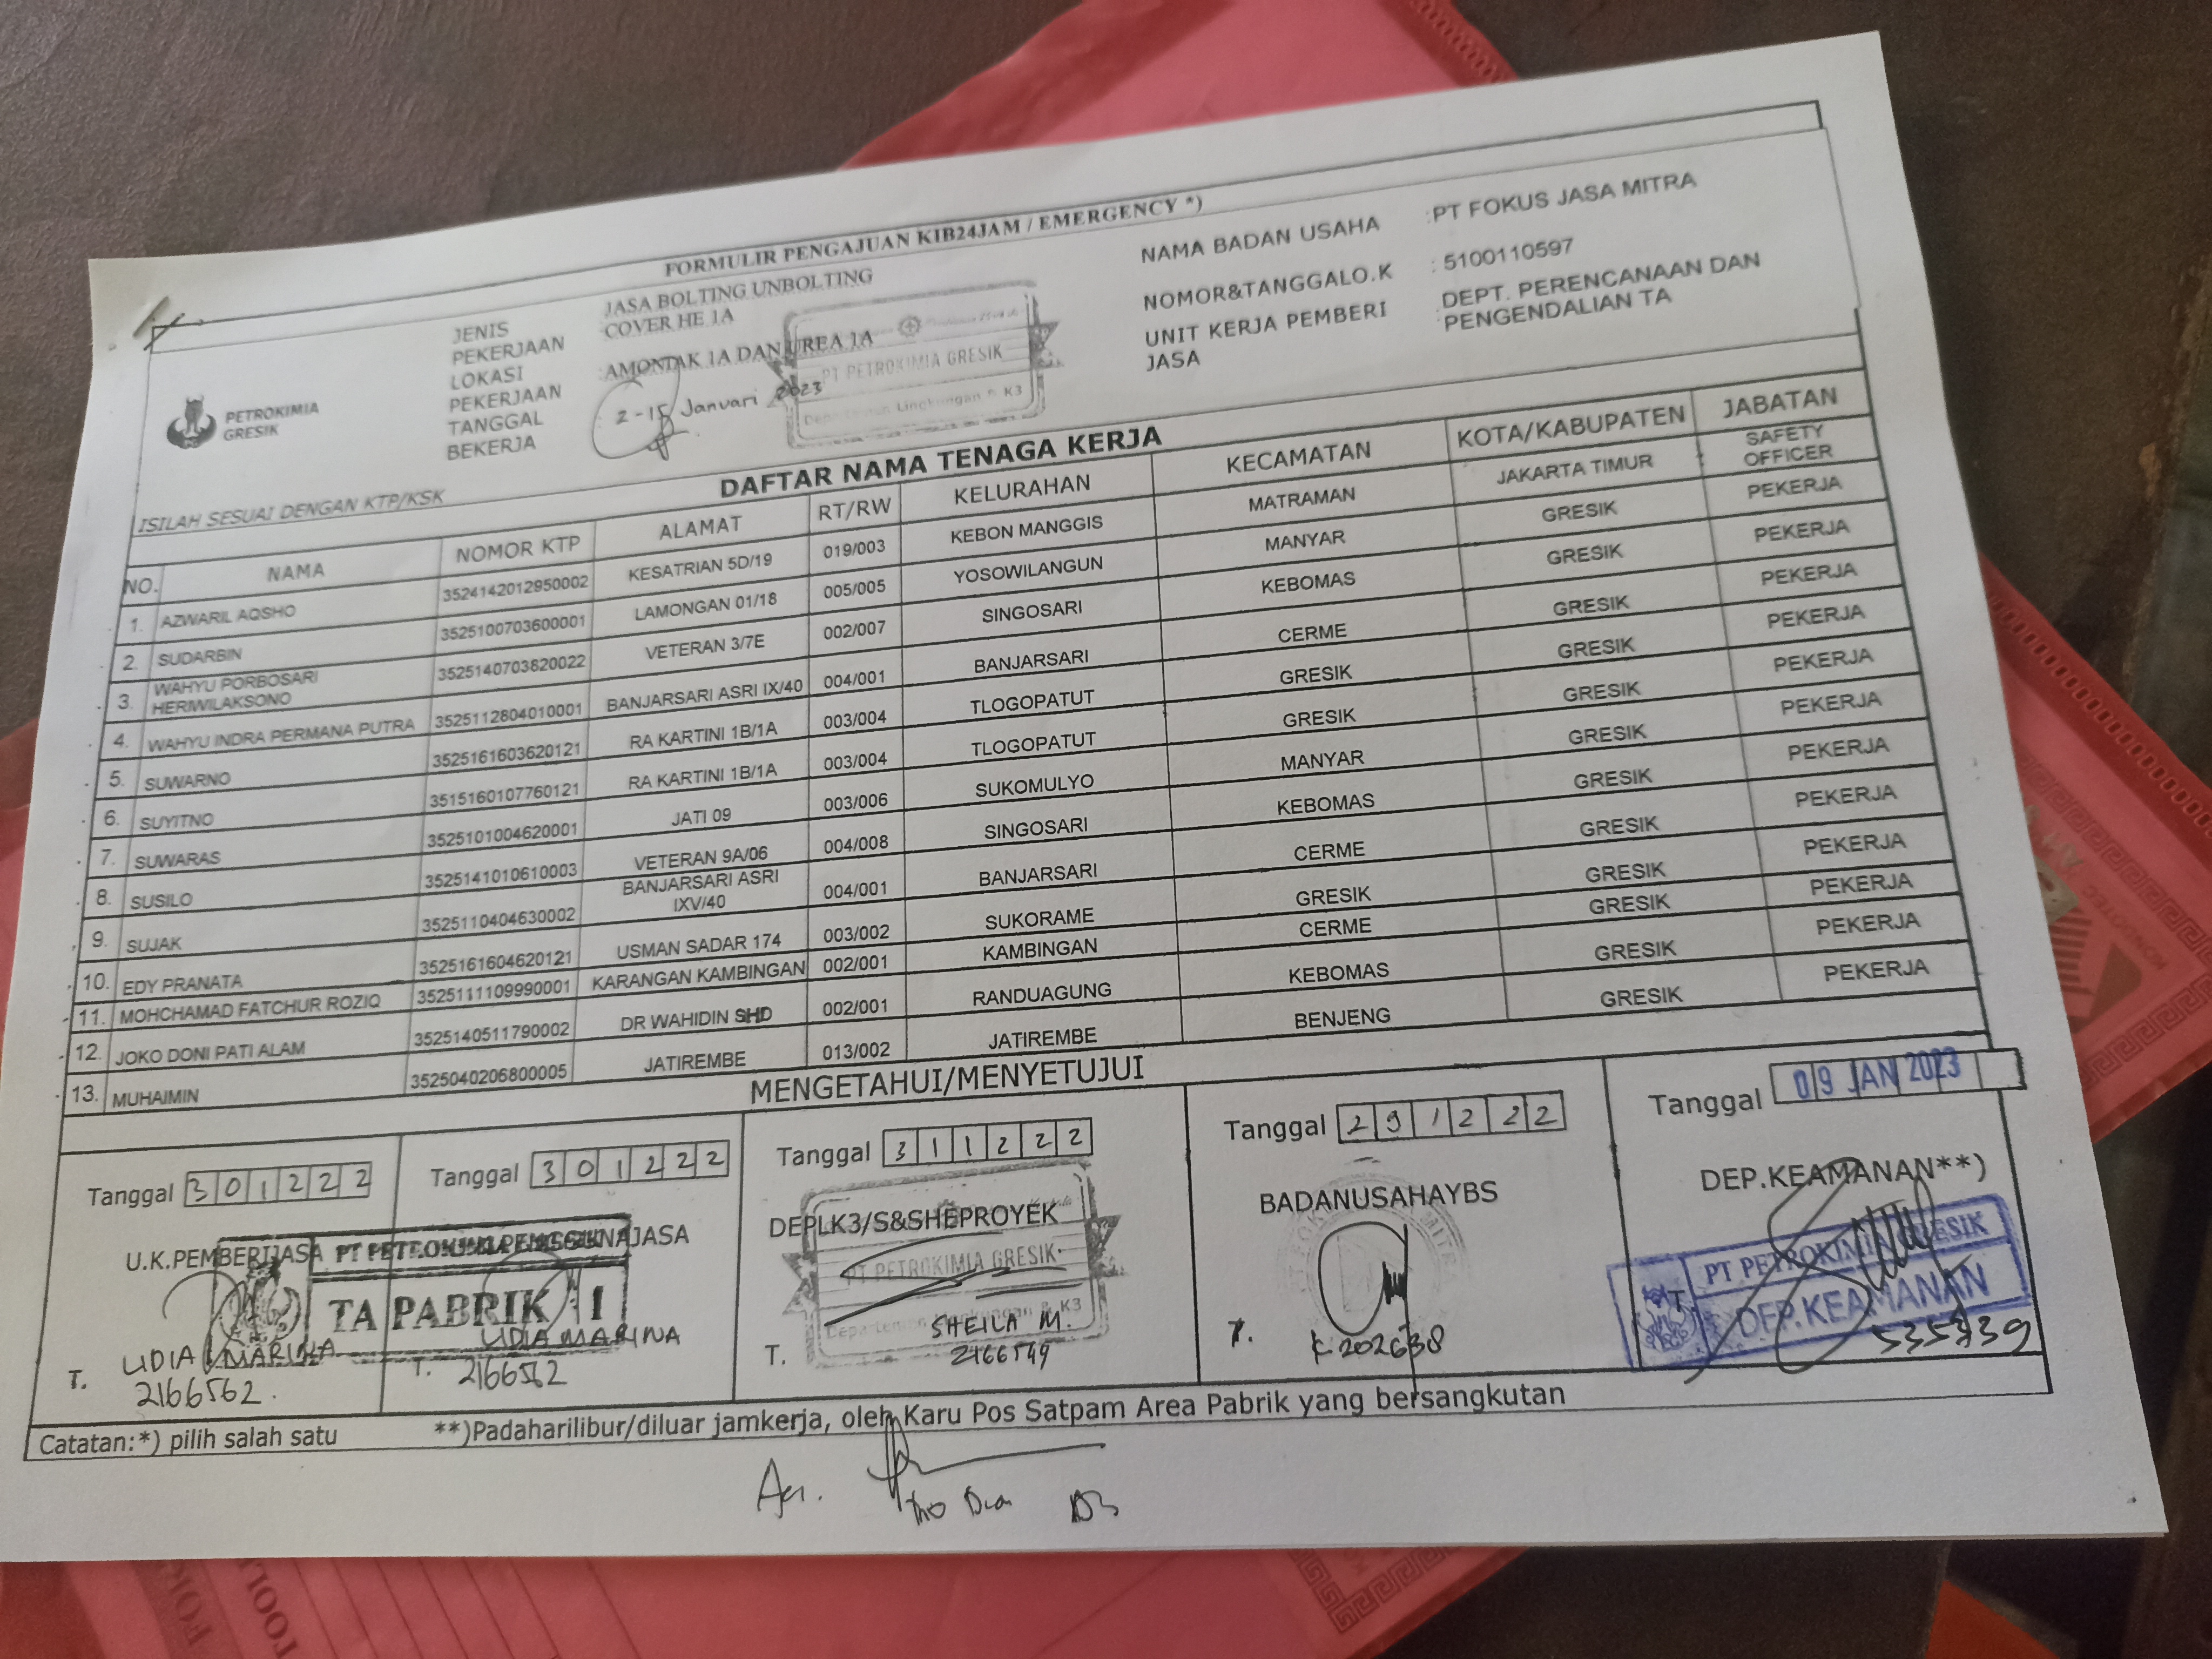 FORMULIR PENGAJUAN KIB24JAM / EMERGENCY *)
PETROKIMIA
GRESIK
JENIS
PEKERJAAN
LOKASI
PEKERJAAN
TANGGAL
BEKERJA
JASA BOLTING UNBOLTING
:COVER HE 1A
:AMONIAK 1A DAN UREA 1A
: 2 - 15 Januari 2023
PT PETROKIMIA GRESIK
Departemen Lingkungan & K3
NAMA BADAN USAHA :PT FOKUS JASA MITRA
NOMOR&TANGGALO.K : 5100110597
UNIT KERJA PEMBERI
JASA
DEPT. PERENCANAAN DAN
:PENGENDALIAN TA
ISILAH SESUAI DENGAN KTP/KSK
DAFTAR NAMA TENAGA KERJA
NO. NAMA NOMOR KTP ALAMAT RT/RW KELURAHAN KECAMATAN KOTA/KABUPATEN JABATAN
1. AZWARIL AQSHO 3524142012950002 KESATRIAN 5D/19 019/003 KEBON MANGGIS MATRAMAN JAKARTA TIMUR SAFETY OFFICER
2. SUDARBIN 3525100703600001 LAMONGAN 01/18 005/005 YOSOWILANGUN MANYAR GRESIK PEKERJA
3. WAHYU PORBOSARI HERIWILAKSONO 3525140703820022 VETERAN 3/7E 002/007 SINGOSARI KEBOMAS GRESIK PEKERJA
4. WAHYU INDRA PERMANA PUTRA 3525112804010001 BANJARSARI ASRI IX/40 004/001 BANJARSARI CERME GRESIK PEKERJA
5. SUWARNO 3525161603620121 RA KARTINI 1B/1A 003/004 TLOGOPATUT GRESIK GRESIK PEKERJA
6. SUYITNO 3515160107760121 RA KARTINI 1B/1A 003/004 TLOGOPATUT GRESIK GRESIK PEKERJA
7. SUWARAS 3525101004620001 JATI 09 003/006 SUKOMULYO MANYAR GRESIK PEKERJA
8. SUSILO 3525141010610003 VETERAN 9A/06 004/008 SINGOSARI KEBOMAS GRESIK PEKERJA
9. SUJAK 3525110404630002 BANJARSARI ASRI IXV/40 004/001 BANJARSARI CERME GRESIK PEKERJA
10. EDY PRANATA 3525161604620121 USMAN SADAR 174 003/002 SUKORAME GRESIK GRESIK PEKERJA
11. MOHCHAMAD FATCHUR ROZIQ 3525111109990001 KARANGAN KAMBINGAN 002/001 KAMBINGAN CERME GRESIK PEKERJA
12. JOKO DONI PATI ALAM 3525140511790002 DR WAHIDIN SHD 002/001 RANDUAGUNG KEBOMAS GRESIK PEKERJA
13. MUHAIMIN 3525040206800005 JATIREMBE 013/002 JATIREMBE BENJENG GRESIK PEKERJA
MENGETAHUI/MENYETUJUI
Tanggal 301222
U.K.PEMBERIJASA
LIDIA MARINA
T. 2166562.
Tanggal 301222
PT PETROKIMIA GRESIK
TA PABRIK I
LIDIA MARINA
T. 2166562
Tanggal 311222
DEPLK3/S&SHEPROYEK
PT PETROKIMIA GRESIK
Departemen Lingkungan & K3
SHEILA M.
T. 2166599
Tanggal 291222
BADANUSAHAYBS
T. K 202638
Tanggal 09 JAN 2023
DEP.KEAMANAN**)
PT PETROKIMIA GRESIK
DEP.KEAMANAN
T. 535739
Catatan:*) pilih salah satu **)Padaharilibur/diluar jamkerja, oleh Karu Pos Satpam Area Pabrik yang bersangkutan